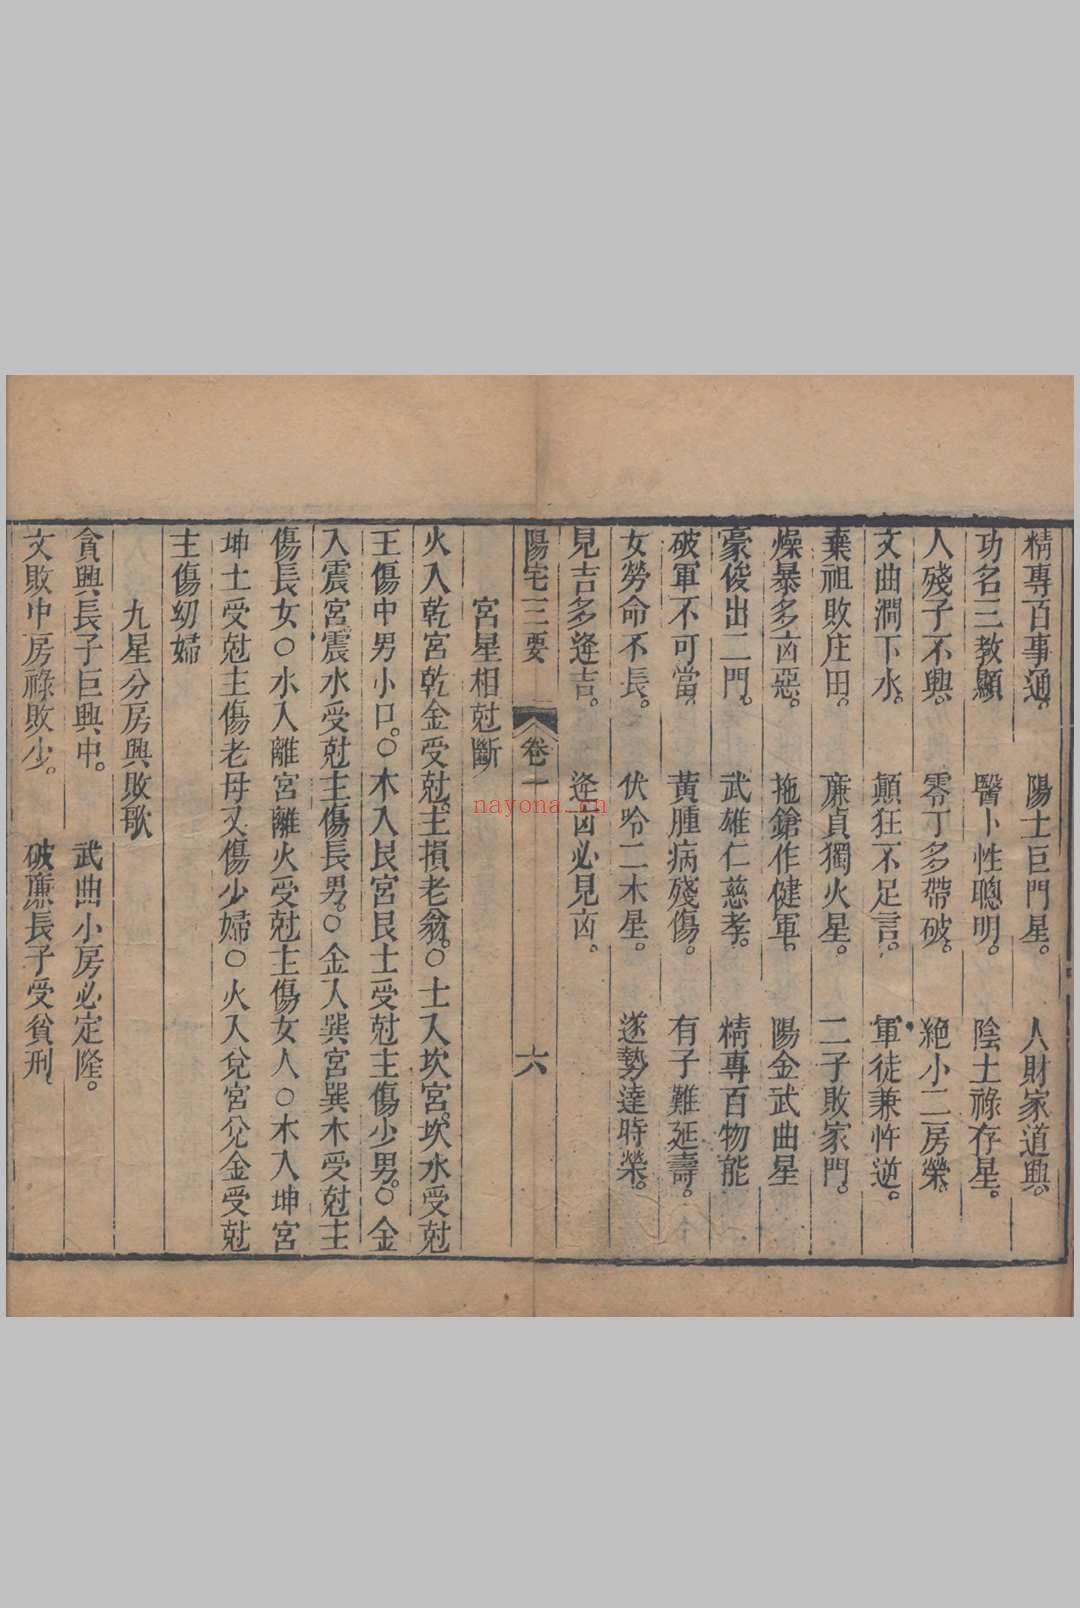 精專百事通。　陽土巨門星。　人財家道興。
功名三教顯　醫卜性聰明。　陰土祿存星。
人殘子不興。　零丁多帶破。　絕小二房榮。
文曲澗下水。　顛狂不足言。　軍徒兼忤逆。
棄祖敗庄田。　廉貞獨火星。　二子敗家門。
燥暴多凶惡。　拖鎗作健軍。　陽金武曲星
豪俊出二門。　武雄仁慈孝。　精專百物能
破軍不可當。　黃腫病殘傷。　有子難延壽。
女勞命不長。　伏吟二木星。　遂勢達時榮。
見吉多逄吉。　逄凶必見凶。
陽宅三要　卷一　六
宮星相尅斷
火入乾宮乾金受尅。主損老翁。○土入坎宮。坎水受尅
王傷中男小口。○木入艮宮艮土受尅主傷少男。○金
入震宮震水受尅主傷長男。○金入巽宮巽木受尅主
傷長女○水入離宮離火受尅主傷女人○木入坤宮
坤土受尅主傷老母又傷少婦○火入兌宮兌金受尅
主傷幼婦
九星分房興敗歌
貪興長子巨興中。　武曲小房必定隆。
文敗中房祿敗少。　破廉長子受貧刑。
nayona.cn